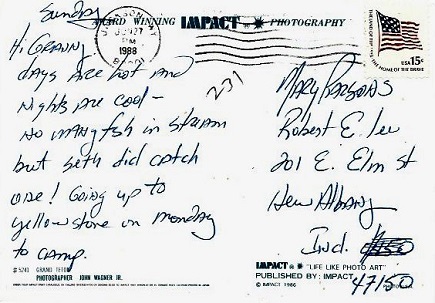 Sunday
AWARD WINNING IMPACT PHOTOGRAPHY
JACKSON, WY
JUN 27
PM
1988
USA 15c
Hi Granny
days are hot and
nights are cool -
no many fish in stream
but Seth did catch
one! Going up to
yellowstone on monday
to camp.
231
Mary Parsons
Robert E. Lee
201 E. Elm st
New Albany
Ind.
47150
#5241 GRAND TETON
PHOTOGRAPHER JOHN WAGNER JR.
IMPACT "LIFE LIKE PHOTO ART"
PUBLISHED BY: IMPACT
© IMPACT 1986